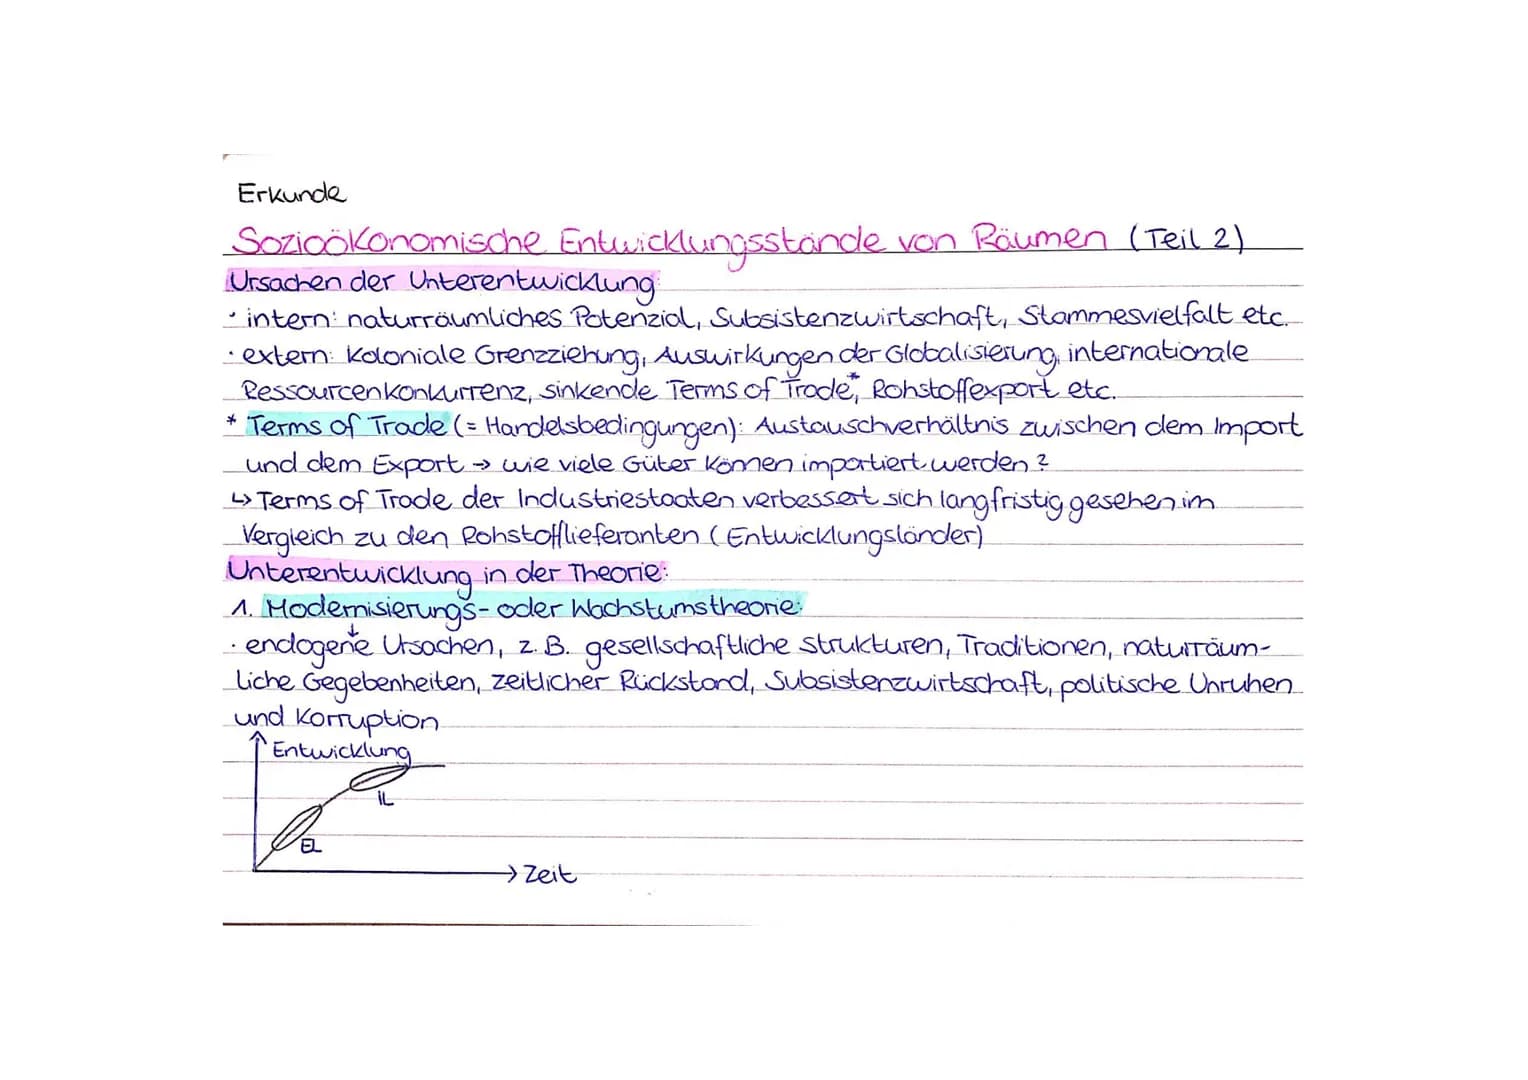 Erkunde
Sozioökonomische Entwicklungsstände von Räumen (Teil 2)
Ursachen der Unterentwicklung:
· intern: naturräumliches Potenzial, Subsistenzwirtschaft, Stammesvielfalt etc.
· extern: koloniale Grenzziehung, Auswirkungen der Globalisierung, internationale
Ressourcenkonkurrenz, sinkende Terms of Trade*, Rohstoffexport etc.
* Terms of Trade (= Handelsbedingungen): Austauschverhältnis zwischen dem Import
und dem Export → wie viele Güter können importiert werden?
↳ Terms of Trade der Industriestaaten verbessert sich langfristig gesehen im
Vergleich zu den Rohstofflieferanten (Entwicklungsländer)
Unterentwicklung in der Theorie:
1. Modernisierungs- oder Wachstumstheorie:
· endogene Ursachen, z. B. gesellschaftliche Strukturen, Traditionen, naturräum-
liche Gegebenheiten, zeitlicher Rückstand, Subsistenzwirtschaft, politische Unruhen
und Korruption
Entwicklung
IL
EL
Zeit